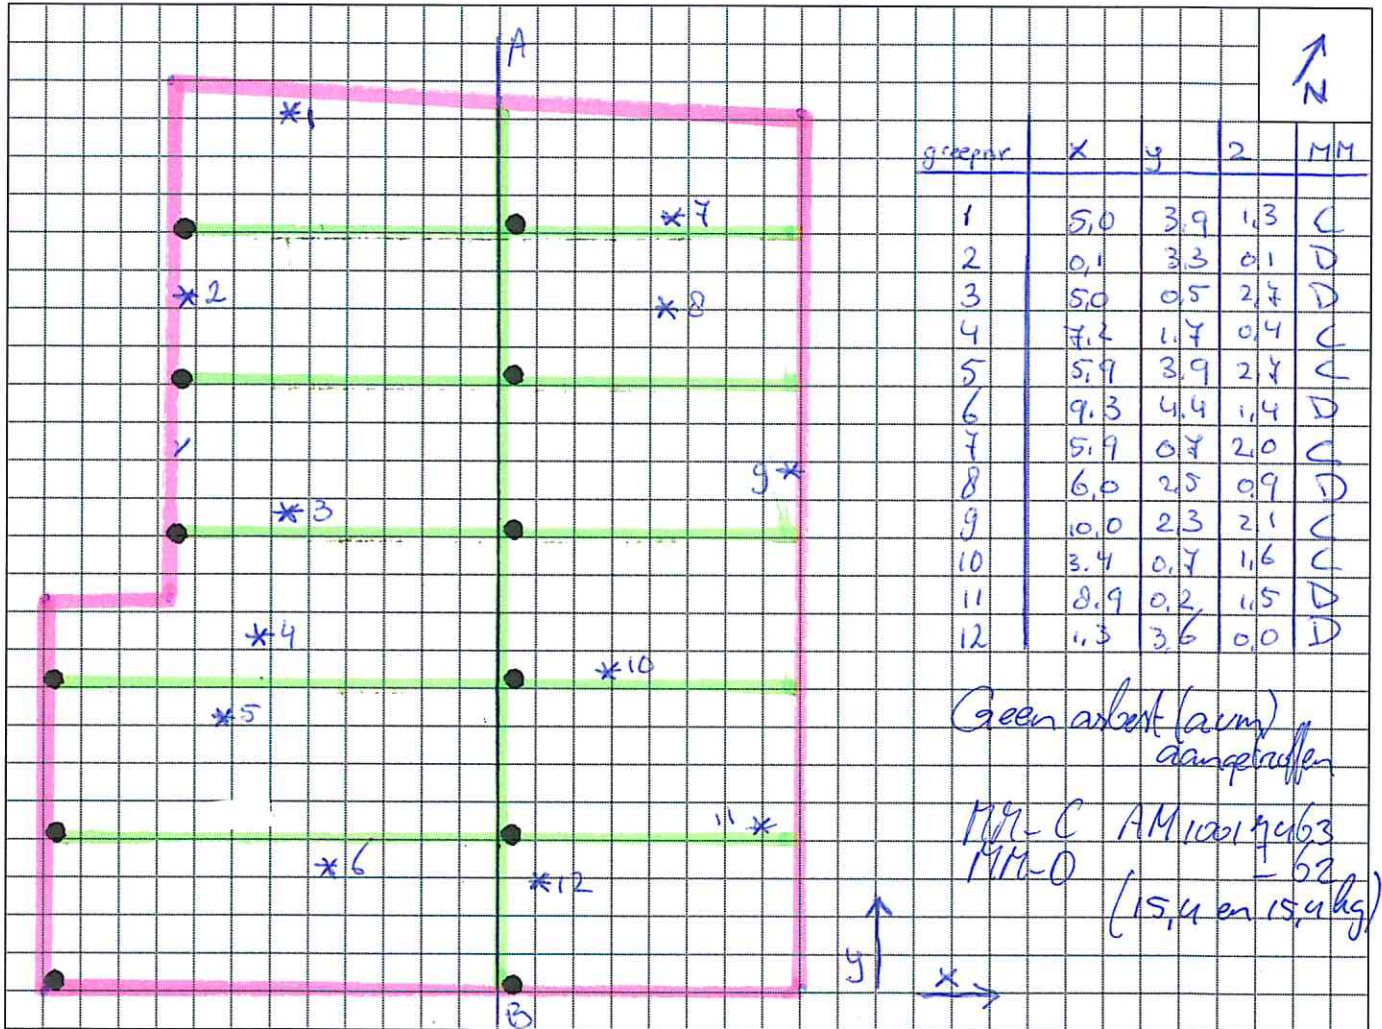 A
N
*1
*7
*2
*8
9*
*3
*4
*10
*5
11*
*6
*12
B
y
x
greepnr x y z MM
1 5,0 3,9 1,3 C
2 0,1 3,3 0,1 D
3 5,0 0,5 2,7 D
4 7,2 1,7 0,4 C
5 5,9 3,9 2,7 C
6 9,3 4,4 1,4 D
7 5,9 0,7 2,0 C
8 6,0 2,5 0,9 D
9 10,0 2,3 2,1 C
10 3,4 0,7 1,6 C
11 8,9 0,2 1,5 D
12 1,3 3,6 0,0 D
Geen asbest (avm)
aangetroffen
MM-C AM10017463
MM-D - 62
(15,4 en 15,4 kg)